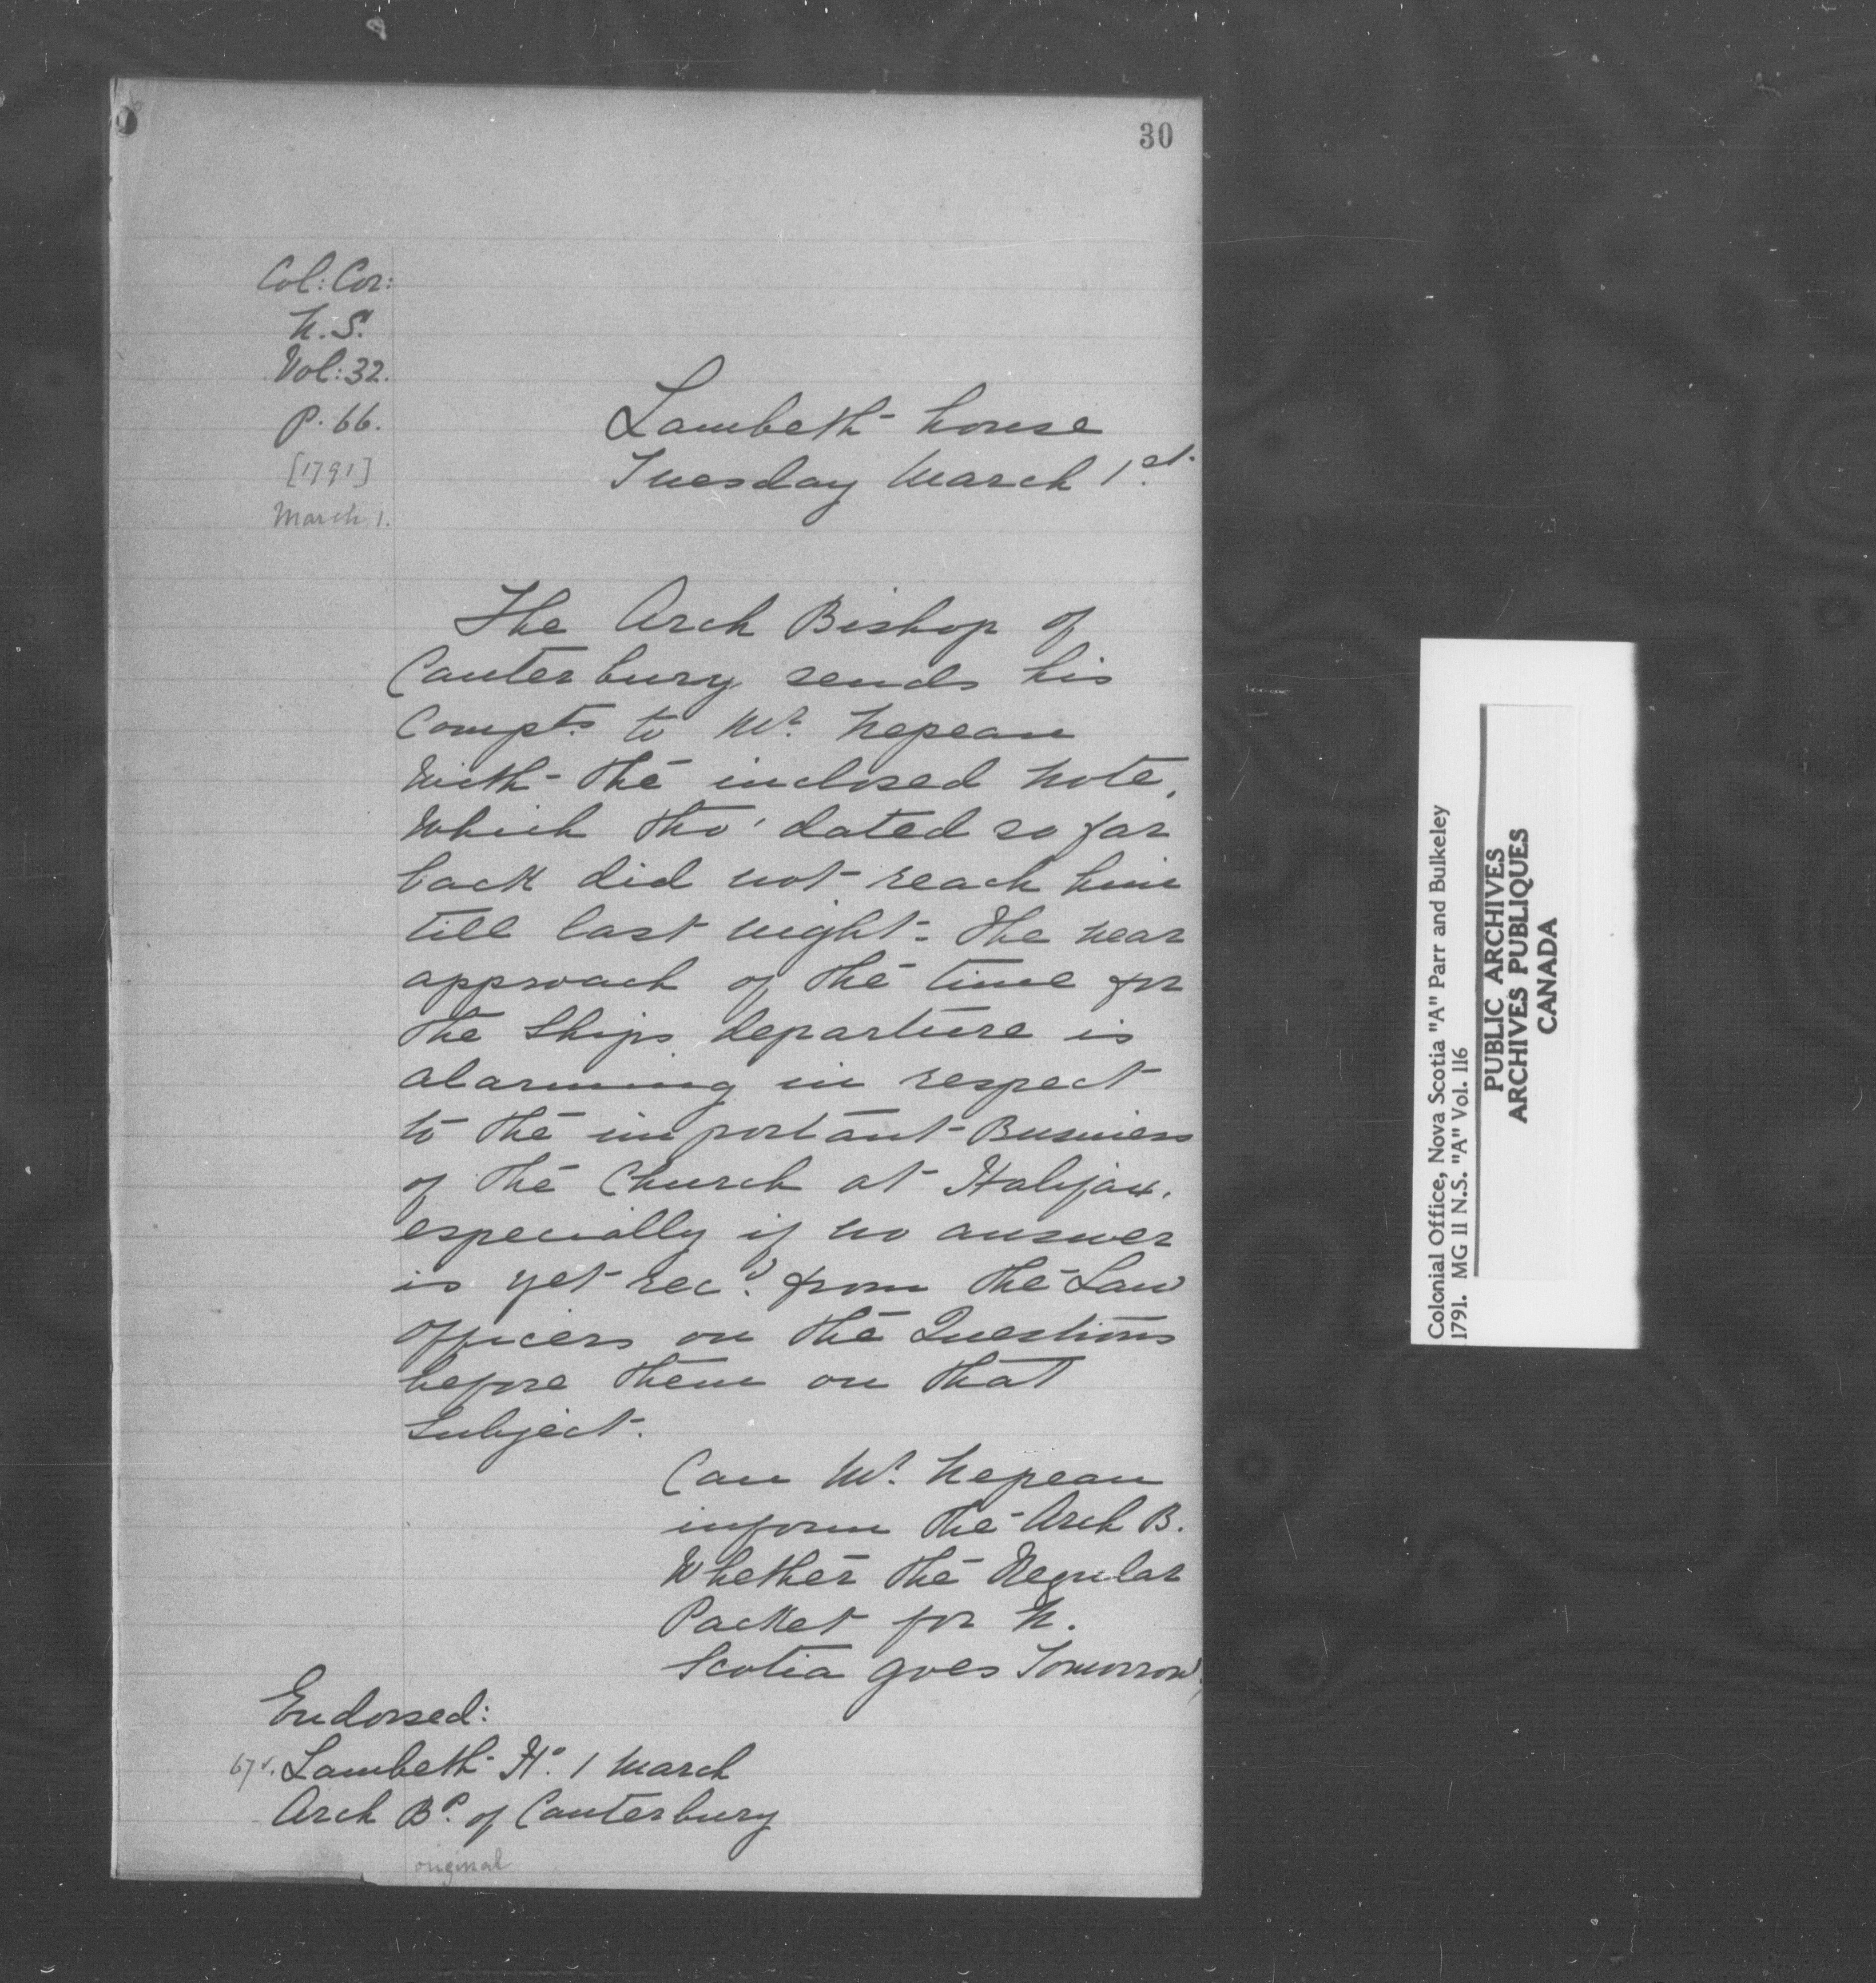 30
Col: Cor:
N.S.
Vol: 32.
P. 66.
[1791]
March 1.
Lambeth house
Tuesday March 1st.
The Arch Bishop of
Canterbury sends his
Compts. to Mr. Nepean
With the inclosed Note,
Which tho' dated so far
back did not reach him
till last night. The near
approach of the time for
the Ships departure is
alarming in respect
to the important Business
of the Church at Halifax,
especially if no answer
is yet recd. from the Law
Officers on the Questions
before them on that
Subject.
Can Mr. Nepean
inform the Arch B.
Whether the Regular
Packet for N.
Scotia goes Tomorrow,
Endorsed:
67v. Lambeth Ho. 1 March
Arch Bp. of Canterbury
original
Colonial Office, Nova Scotia "A" Parr and Bulkeley
1791. MG 11 N.S. "A" Vol. 116
PUBLIC ARCHIVES
ARCHIVES PUBLIQUES
CANADA